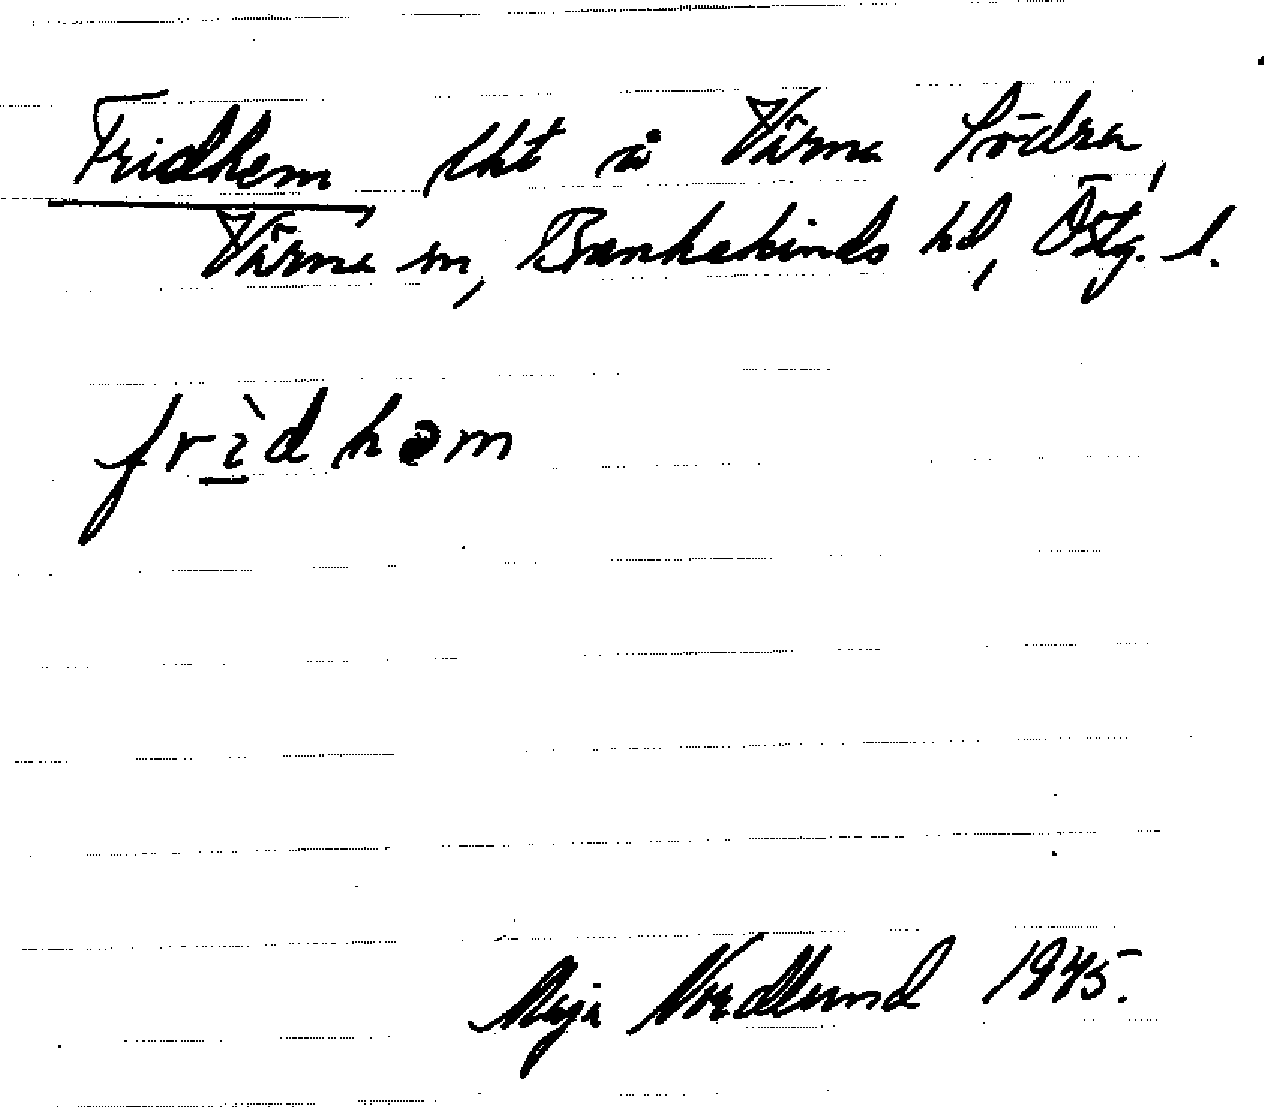 Fridhem lht å Värna Södra,
Värna sn, Bankekinds hd, Östg. l.
frìdhəm
Maja Nordlund 1945.